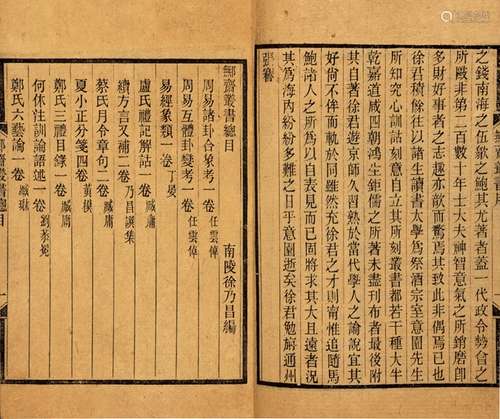 之錢南海之伍歙之鮑
所厭非第二百數十年士大夫神智意氣之所銷磨卽
多財好事者之志趣亦歙而驚焉其致此非偶焉已也
徐君積餘往以諸生讀書太學爲祭酒宗室意園先生
所知究心訓詁刻意自立其所刻叢書都若干種大半
乾嘉道咸四朝鴻生鉅儒之所著未盡刊布者最後附
其自著徐君遊京師久習熟於當代學人之論說宜其
好尙不苟而軌於同雖然充徐君之才則南惟追隨馬
鮑諸人之所爲以自表見而已固將求其大且遠者況
其爲海內紛紛多難之日乎意園逝矣徐君勉旃通州
張謇
鄦齋叢書總目
南陵徐乃昌編
周易諸卦合象考一卷 任雲倬
周易互體卦變考一卷 任雲倬
易經象類一卷 丁晏
盧氏禮記解詁一卷 臧庸
續方言又補二卷 乃昌譔集
蔡氏月令章句二卷 臧庸
夏小正分箋四卷 黃模
鄭氏三禮目錄一卷 臧庸
何休注訓論語述一卷 劉恭冕
鄭氏六藝論一卷 臧琳